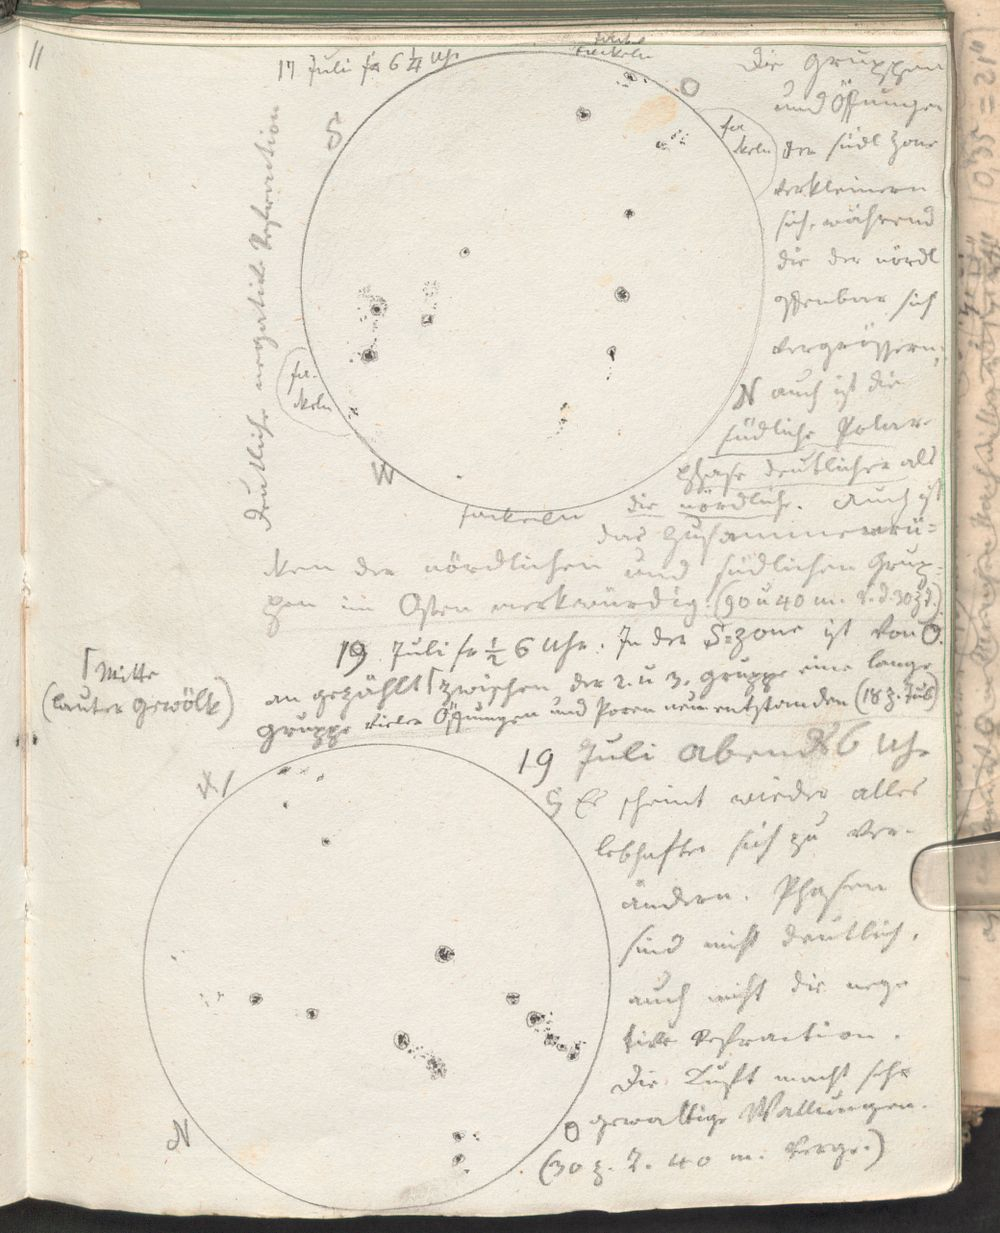 11
17 Juli fr 6 1/4 Uhr
fackeln
S
O
fa-
ckeln
Die Gruppen
und Öffnungen
der südl Zone
verkleinern
sich, während
die der nördl
offenbar sich
vergrössern,
N auch ist die
südliche Polar-
phase deutlicher als
die nördliche. Auch ist
das Zusammenrü=
cken der nördlichen und südlichen Grup-
pen im Osten merkwürdig. (90 u 40 m. v. d. 30 z d.)
deutliche negative Refraction
fa-
ckeln
W
fackeln
19 Juli fr 1/2 6 Uhr. In der S=zone ist von O.
an gezählt ⌈ zwischen der 2. u 3. Gruppe eine lange
Gruppe vieler Öffnungen und Poren neu entstanden (18 z. Tub)
⌈ Mitte
(lauter Gewölk)
19 Juli abends 6 Uhr
W
S Es scheint wieder alles
lebhafter sich zu ver-
ändern. Phasen
sind nicht deutlich,
auch nicht die nega
tive Refraction.
Die Luft macht sehr
gewaltige Wallungen.
(30 z. T. 40 m. Vergr.)
N
O